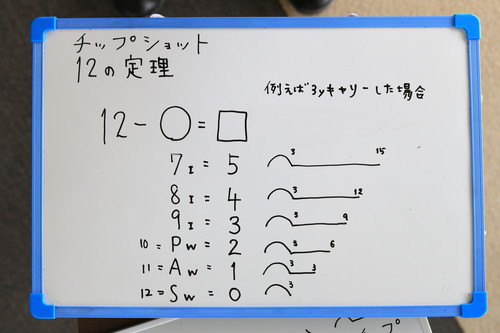 チップショット
12の定理
例えば3yキャリーした場合
12-○=□
7I=5 3 15
8I=4 3 12
9I=3 3 9
10=Pw=2 3 6
11=Aw=1 3 3
12=Sw=0 3